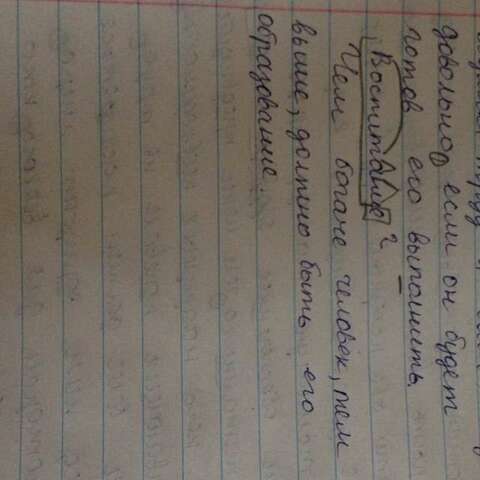 довольно, если он будет
готов его выполнить.
Воспитание 2
Чем богаче человек, тем
выше, должно быть его
образование.